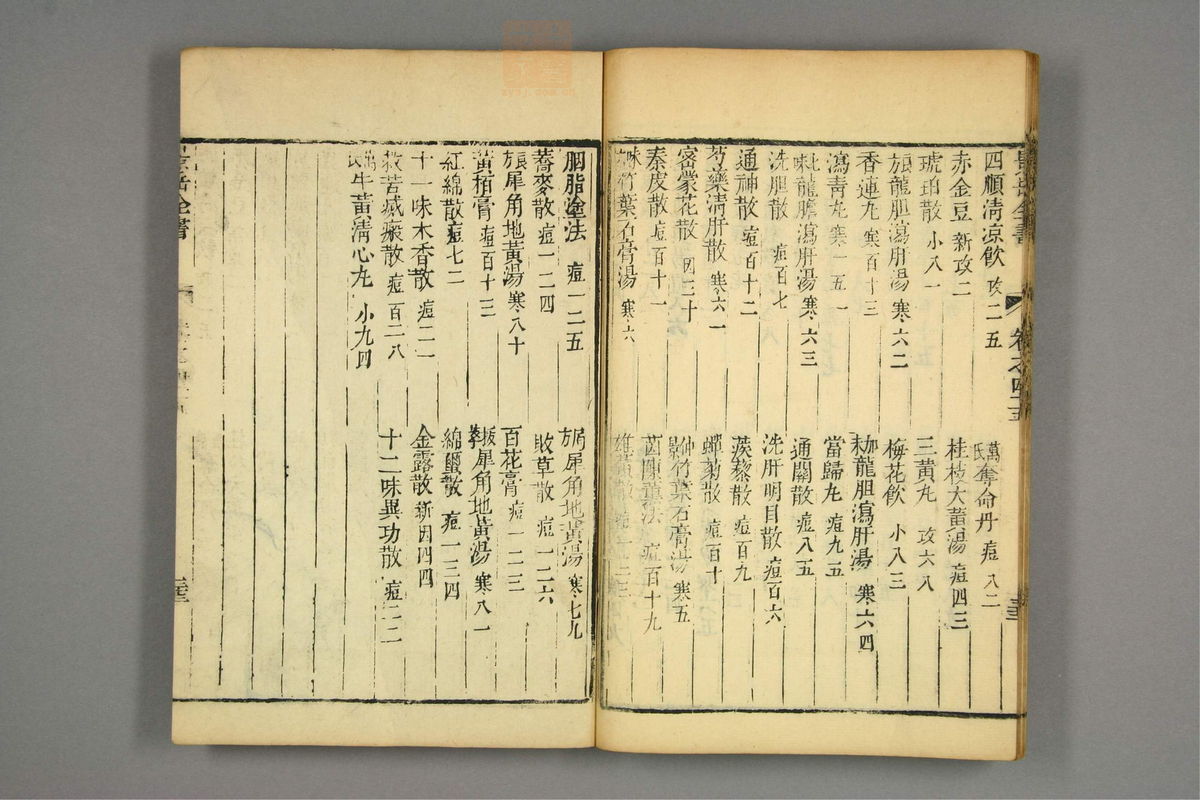 景岳全書 卷之四十五
四順清凉飲 攻二五
萬氏奪命丹 痘八二
赤金豆 新攻二
桂枝大黄湯 痘四三
琥珀散 小八一
三黄丸 攻六八
龍胆瀉肝湯 寒六二
梅花飲 小八三
香連丸 寒百十三
加味龍胆瀉肝湯 寒六四
瀉青丸 寒一五一
當歸丸 痘九五
龍膽瀉肝湯 寒六三
通關散 痘八五
洗胆散 痘百七
洗肝明目散 痘百六
通神散 痘百十二
蒺藜散 痘百九
芍藥清肝散 寒六一
蟬菊散 痘百十
密蒙花散 因三十
竹葉石膏湯 寒五
秦皮散 痘百十一
茵陳熏法 痘百十九
竹葉石膏湯 寒六
胭脂塗法 痘一二五
犀角地黃湯 寒七九
蕎麥散 痘一二四
敗草散 痘一二六
犀角地黃湯 寒八十
百花膏 痘一二三
黃栢膏 痘百十三
拔萃犀角地黃湯 寒八一
紅綿散 痘七二
綿蠶散 痘一三四
十一味木香散 痘二一
金露散 新因四四
救苦滅瘢散 痘百二八
十二味異功散 痘二二
萬氏牛黃清心丸 小九四
景岳全書